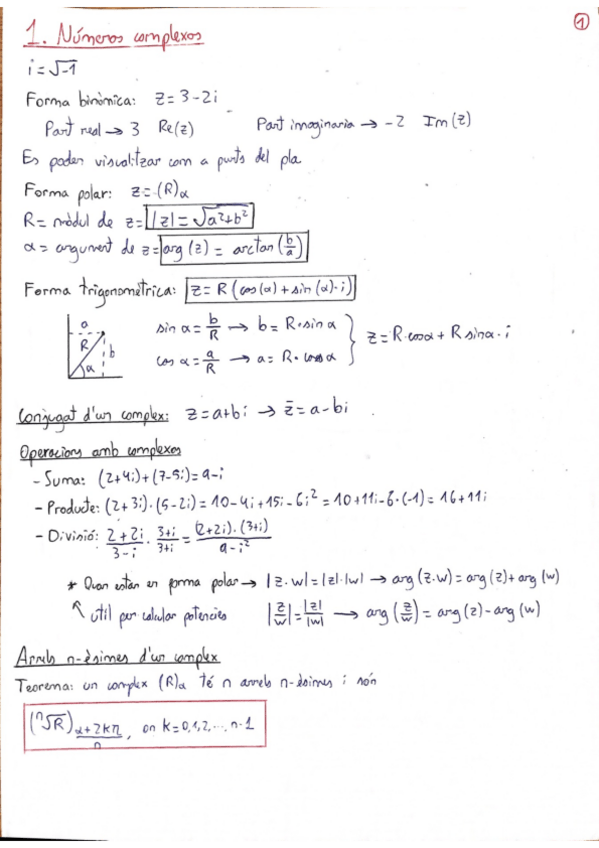 1
1. Números complexos
i = √-1
Forma binòmica: z = 3 - 2i
Part real → 3 Re(z) Part imaginaria → -2 Im(z)
Es poden visualitzar com a punts del pla
Forma polar: z = (R)α
R = mòdul de z = |z| = √a²+b²
α = argument de z = arg(z) = arctan(b/a)
Forma trigonomètrica: z = R(cos(α) + sin(α)·i)
a R b α
sin α = b/R → b = R·sin α
cos α = a/R → a = R·cos α
z = R·cosα + R sinα·i
Conjugat d'un complex: z = a+bi → z̄ = a-bi
Operacions amb complexos
- Suma: (2+4i)+(7-5i) = 9-i
- Producte: (2+3i)·(5-2i) = 10-4i+15i-6i² = 10+11i-6·(-1) = 16+11i
- Divisió: (2+2i)/(3-i) · (3+i)/(3+i) = (2+2i)·(3+i)/(9-i²)
* Quan estan en forma polar → |z·w| = |z|·|w| → arg(z·w) = arg(z)+arg(w)
↖ útil per calcular potencies |z/w| = |z|/|w| → arg(z/w) = arg(z)-arg(w)
Arrels n-èsimes d'un complex
Teorema: un complex (R)α té n arrels n-èsimes i són
(ⁿ√R) (α+2kπ)/n, on k=0,1,2,...,n-1